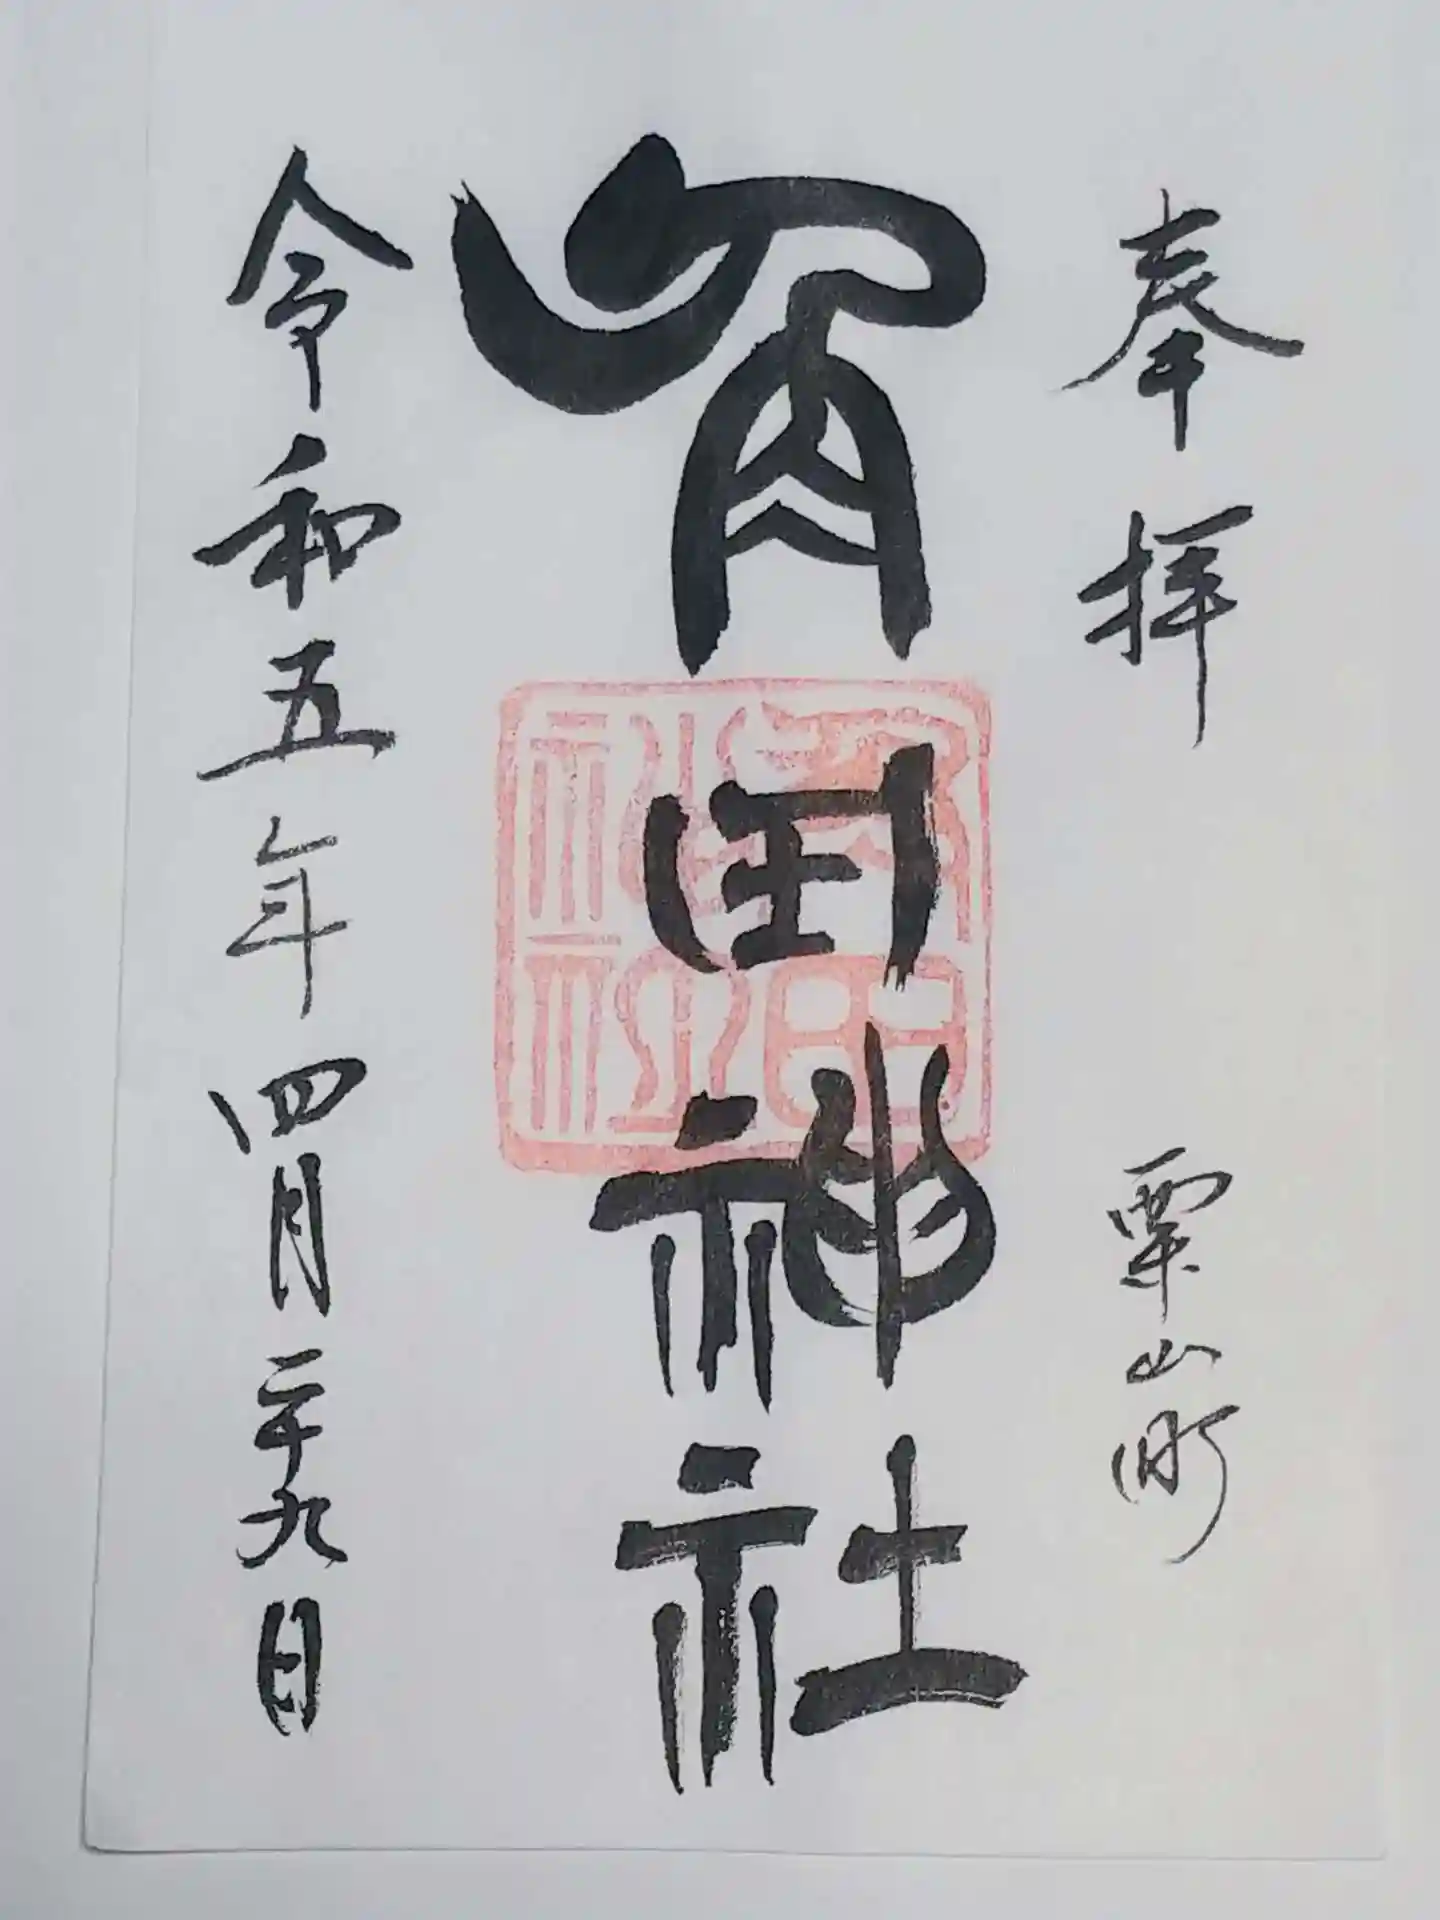 奉拝 栗山町
角田神社
令和五年四月二十九日
角田神社